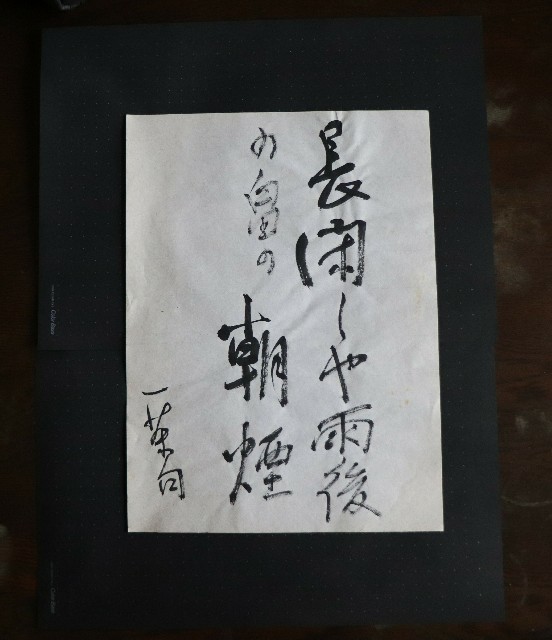 長閑しや雨後
の畠の朝煙
一茶句